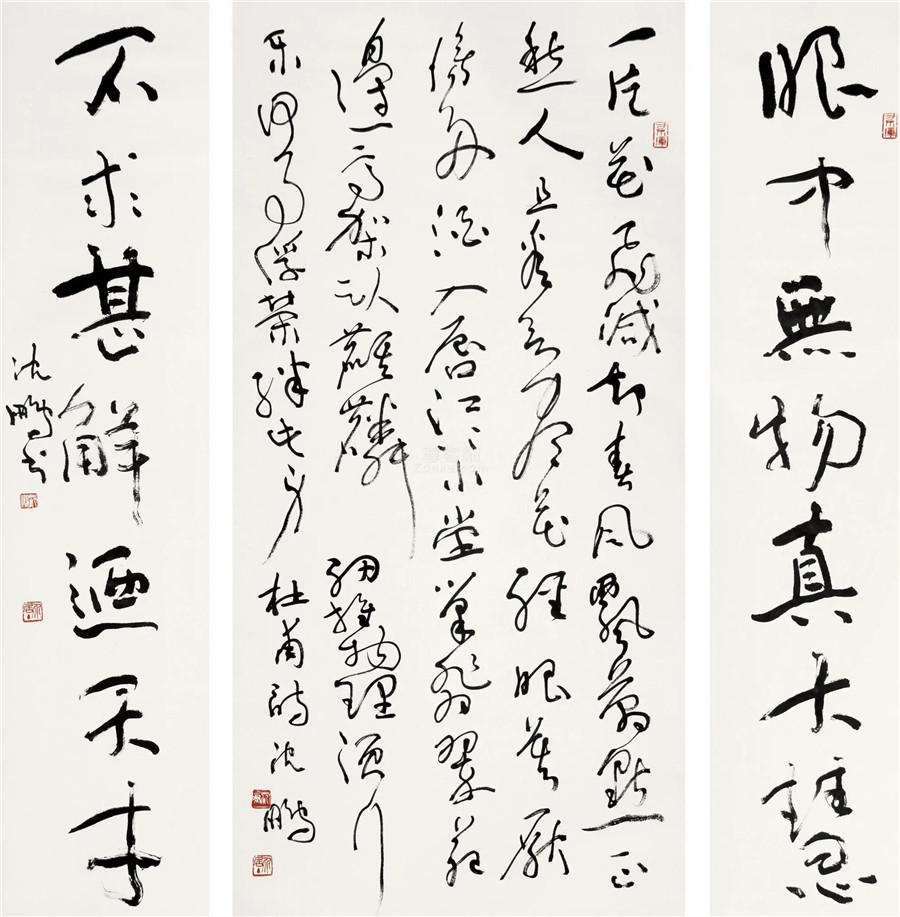 眼中無物真大
一片花飛減却春風飄萬點正
愁人且看欲盡花經眼莫厭
傷多酒入唇江上小堂巢翡翠苑
邊高塚臥麒麟細推物理須行
樂何用浮榮絆此身杜甫詩沈鵬
不求甚解迺天
沈鵬書